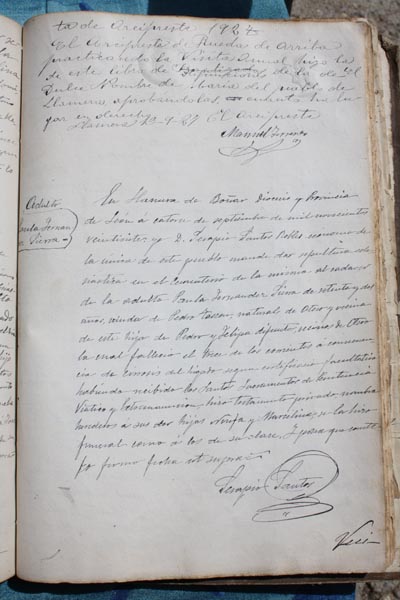 ta de Arcipreste 1927
El Arcipreste de Rueda de Arriba
practicando la Visita Anual hizo la
de este libro de Difuntos de la del
Dulce Nombre de Maria del pueblo de
Llamera aprobándolos, en cuanto ha lu
gar en derecho
Llamera 20-9-27 El Arcipreste
Manuel
Adulto
Paula Fernan
Sierra
En Llamera de Boñar Diócesis y Provincia
de León á catorce de septiembre de mil novecientos
veintisiete yo D. Serapio Santos Robles ecónomo de
la única de este pueblo mandé dar sepultura ecle
siástica en el Cementerio de la misma al cadáver
de la adulta Paula Fernandez Sierra de setenta y dos
años, viuda de Pedro natural de Otero y vecina
de este hija de Pedro y Felipa difuntos vecinos de Otero
la cual falleció el trece de los corrientes á consecuen
cia de cirrosis del hígado segun certificación facultativa
habiendo recibido los Santos Sacramentos de Penitencia
Viático y Extremaunción, hizo testamento privado nombra
herederos á sus dos hijos y Marcelina; se la hizo
funeral como á los de su clase. Y para que conste
lo firmo fecha ut supra
Serapio Santos